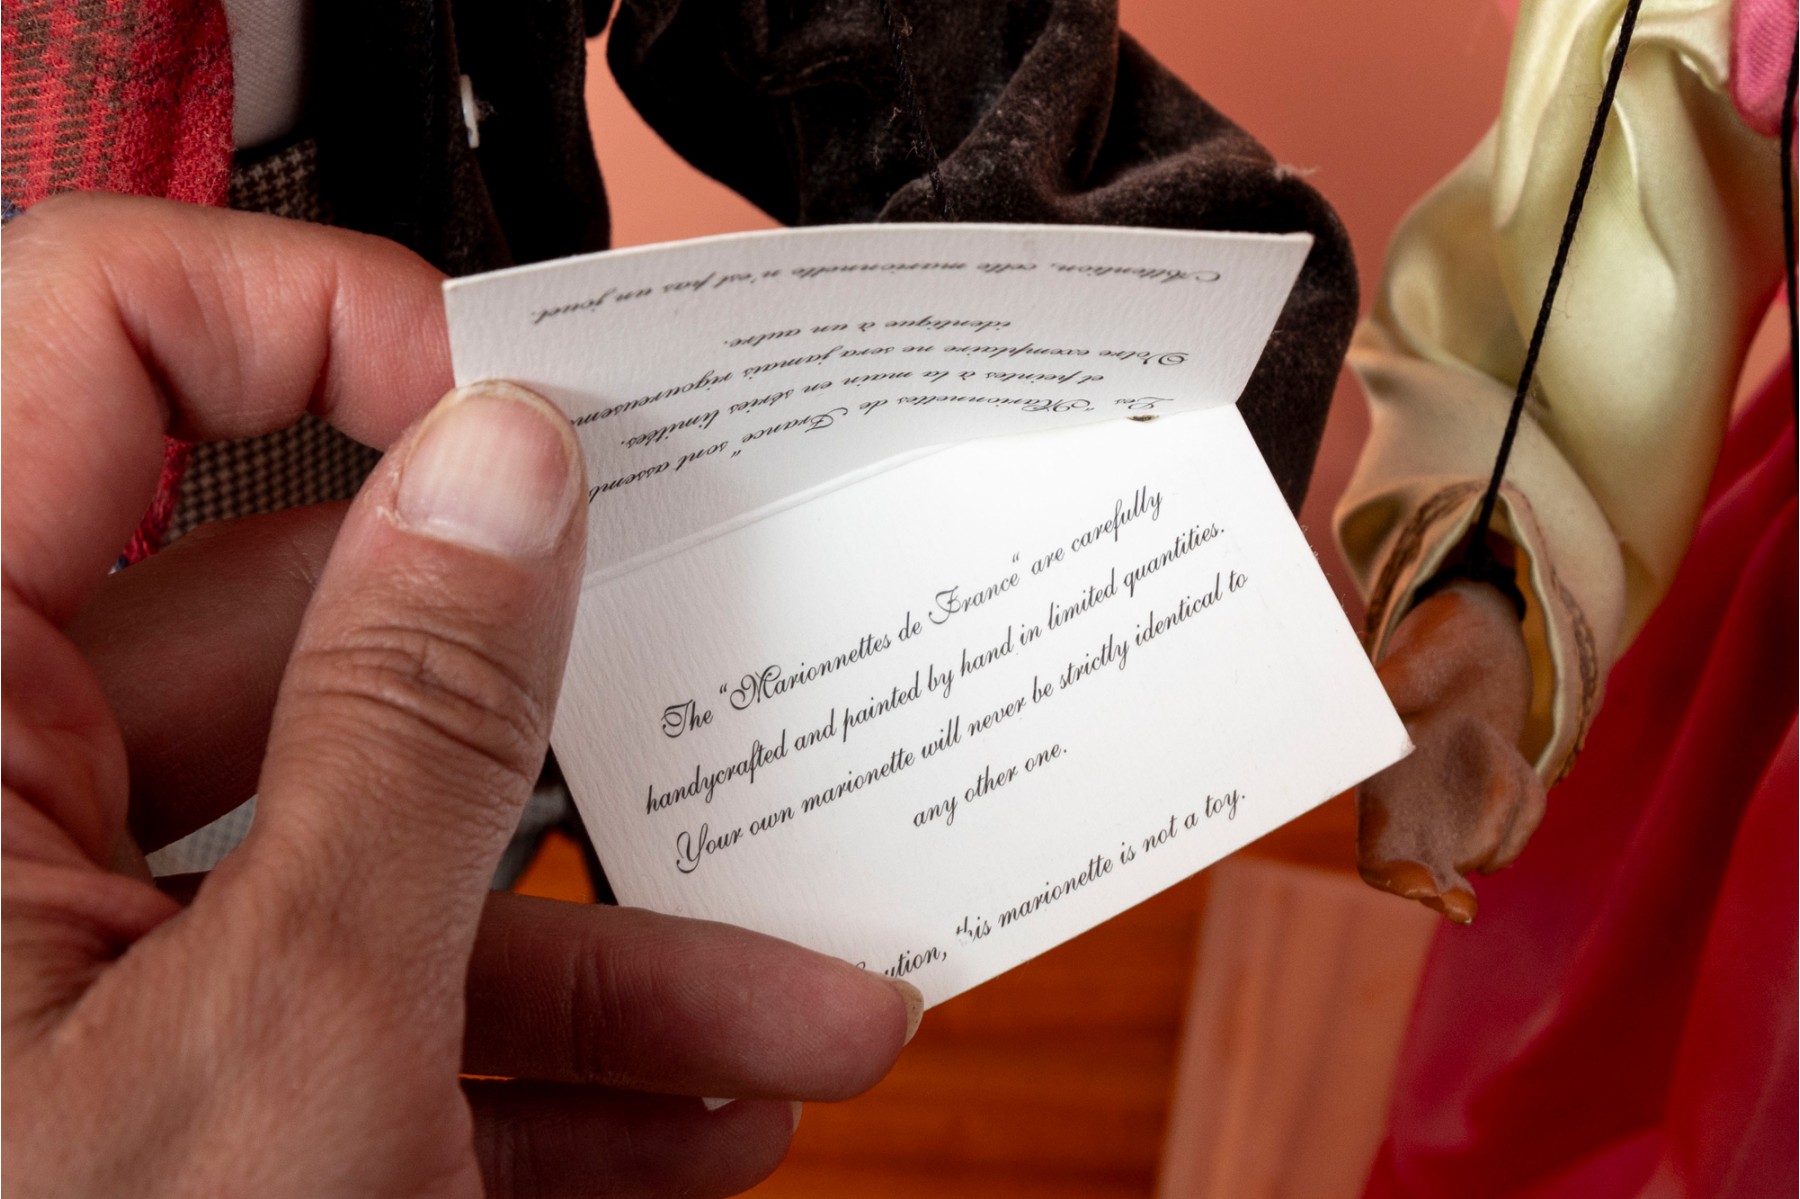 Les “Marionnettes de France“ sont assemb
et peintes à la main en séries limitées.
Votre exemplaire ne sera jamais rigoureusem
identique à un autre.
Attention, cette marionnette n'est pas un jouet.
The “Marionnettes de France“ are carefully
handycrafted and painted by hand in limited quantities.
Your own marionette will never be strictly identical to
any other one.
ution, this marionette is not a toy.